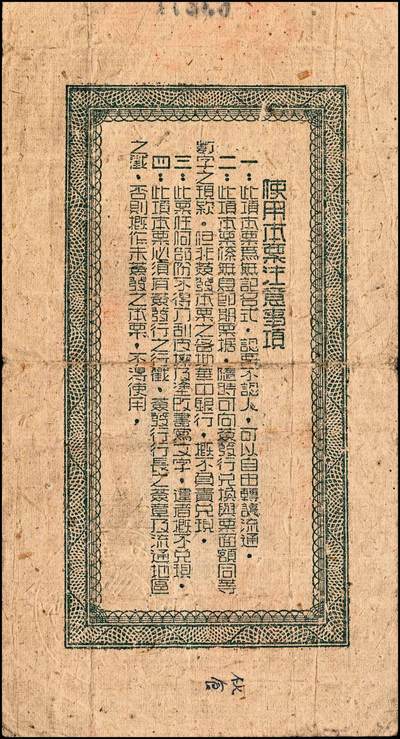 使用本票注意事項
一：此項本票爲無記名式，認票不認人，可以自由轉讓流通。
二：此項本票係無息卽期票據，隨時可向簽發行兌換與票面額同等
數字之現款。但非簽發本票之各地華中銀行，概不負責兌現。
三：此票任何部份不得刮皮擦及塗改書寫文字，違者概不兌現。
四：此項本票必須有簽發行之行戳、簽發行行長之簽章及流通地區
之戳，否則概作未簽發之本票，不得使用，